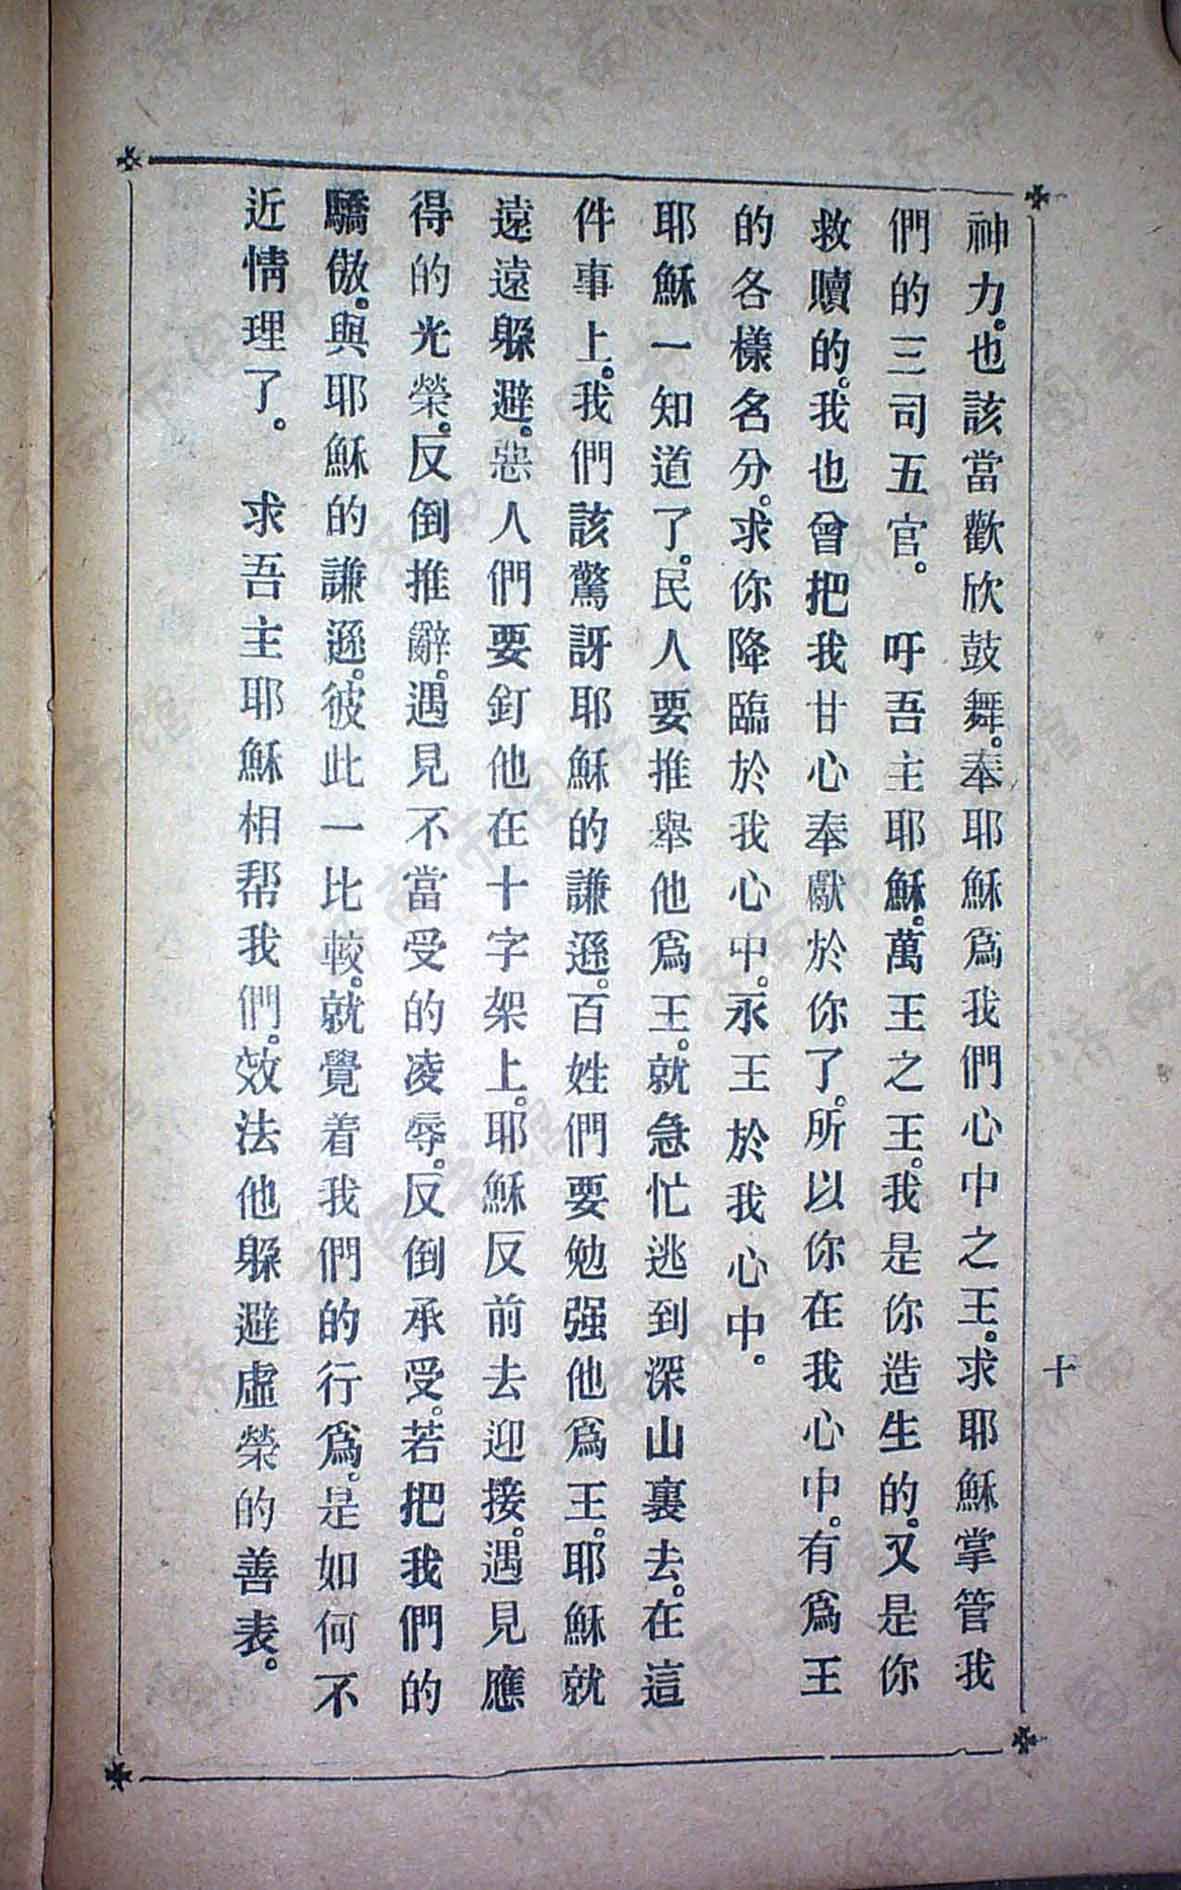 神力。也該當歡欣鼓舞。奉耶穌爲我們心中之王。求耶穌掌管我
們的三司五官。 吁吾主耶穌。萬王之王。我是你造生的。又是你
救贖的。我也曾把我甘心奉獻於你了。所以你在我心中。有爲王
的各樣名分。求你降臨於我心中。永王於我心中。
耶穌一知道了。民人要推舉他爲王。就急忙逃到深山裏去。在這
件事上。我們該驚訝耶穌的謙遜。百姓們要勉强他爲王。耶穌就
遠遠躲避。惡人們要釘他在十字架上。耶穌反前去迎接。遇見應
得的光榮。反倒推辭。遇見不當受的凌辱。反倒承受。若把我們的
驕傲。與耶穌的謙遜。彼此一比較。就覺着我們的行爲。是如何不
近情理了。 求吾主耶穌相帮我們。效法他躲避虛榮的善表。
十